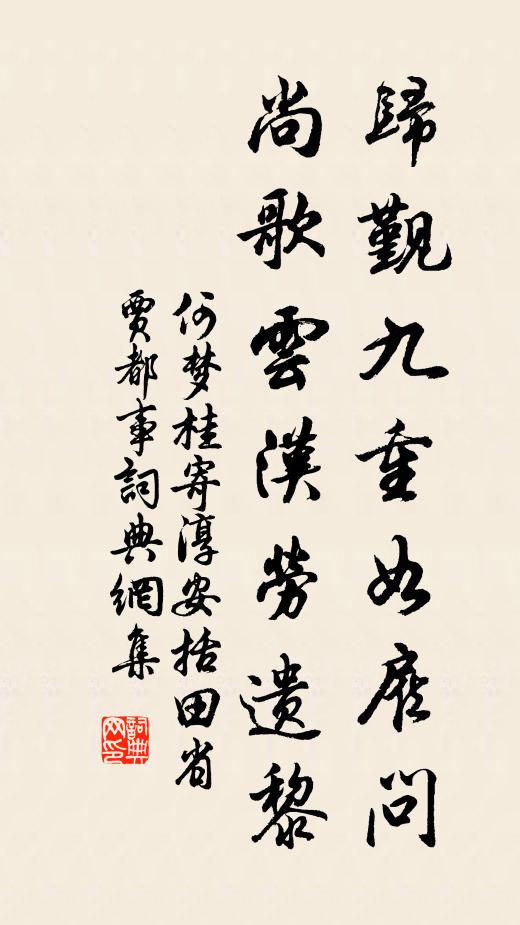 歸觀九重如雇問
尚歌雲漢勞遺黎
何梦桂寄淳安括田省
賈都事詞典網集
詞典网印